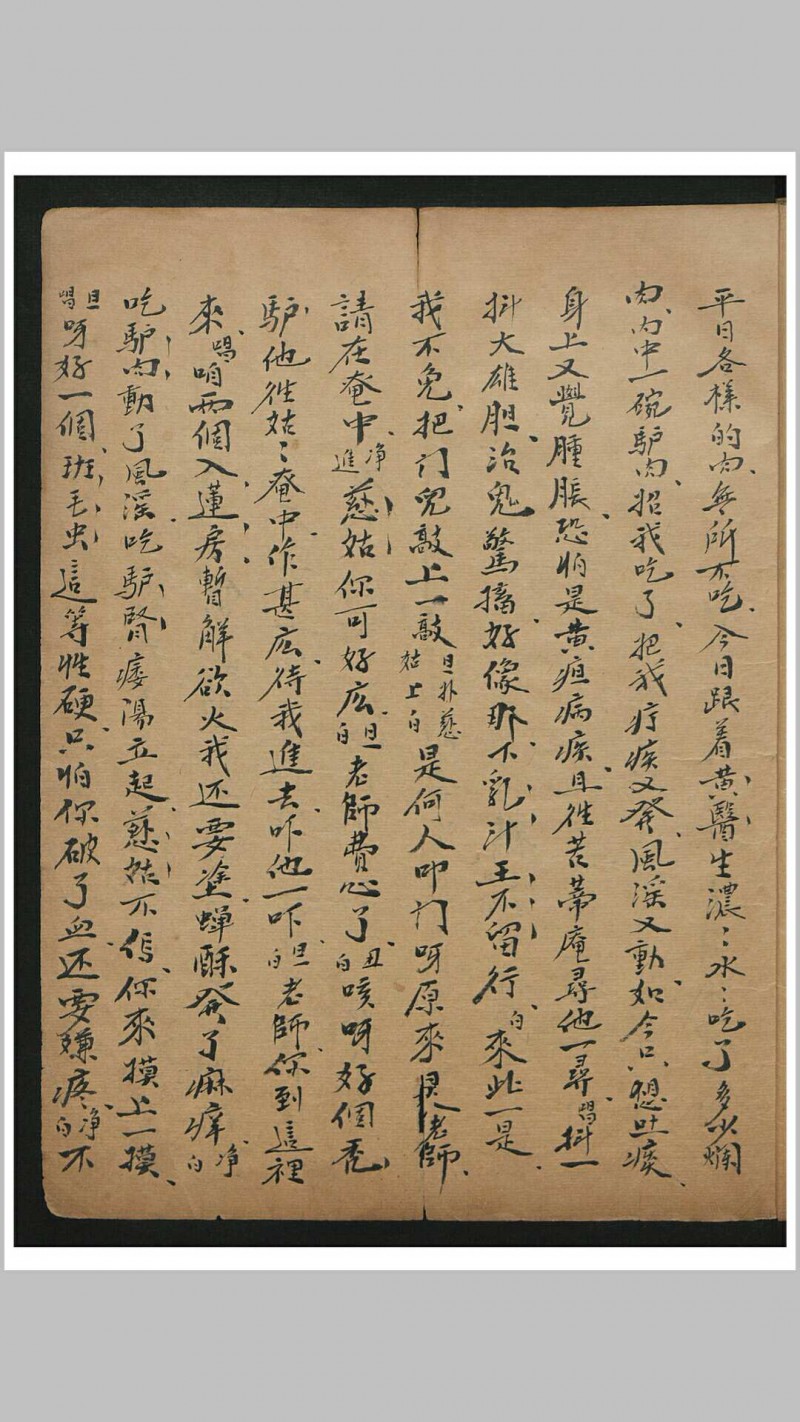 平日各樣的肉無所不吃今日跟着黄醫生濃〻水〻吃了多少爛
肉内中一碗驴肉招我吃了把我疔疾又發風淫又動如今只想吐痰
身上又覺腫脹恐怕是黄疸病疾且往苦蒂庵尋他一尋唱抖一
抖大雄胆治鬼驚搐好像那下乳汁王不留行白來此一是
我不免把门兒敲上一敲旦扑慈姑上白是何人叩门呀原來是老師
請在庵中净進慈姑你可好庅旦白老師費心了丑白咳呀好個秃
驴他往姑〻庵中作甚庅待我進去吓他一吓旦白老師你到這裡
來唱咱两個入蓮房暫解欲火我还要塗蟬酥發了麻痒净白
吃驴肉動了風淫吃驴腎痿陽立起慈姑不信你來摸上一摸
旦唱呀好一個班毛虫這等性硬只怕你破了血还要嫌疼净白不